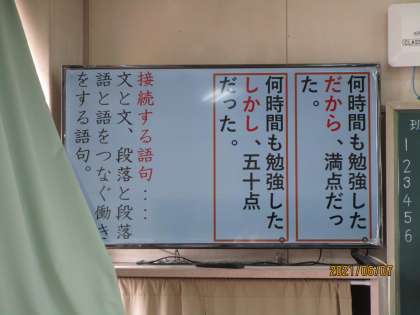 何時間も勉強した。
だから、満点だっ
た。
何時間も勉強した。
しかし、五十点
だった。
接続する語句‥‥
文と文、段落と段落
語と語をつなぐ働き
をする語句。
班
1
2
3
4
5
6
2021/06/07